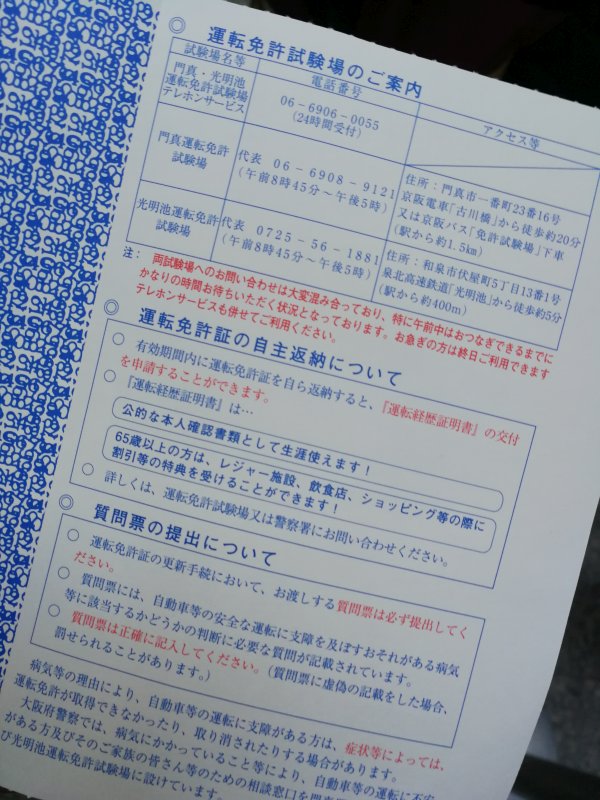 ◎ 運転免許試験場のご案内
試験場名等 電話番号 アクセス等
門真・光明池
運転免許試験場
テレホンサービス
06-6906-0055
(24時間受付)
門真運転免許
試験場
代表 06-6908-9121
(午前8時45分～午後5時)
住所：門真市一番町23番16号
京阪電車「古川橋」から徒歩約20分
又は京阪バス「免許試験場」下車
(駅から約1.5km)
光明池運転免許
試験場
代表 0725-56-1881
(午前8時45分～午後5時)
住所：和泉市伏屋町5丁目13番1号
泉北高速鉄道「光明池」から徒歩約5分
(駅から約400m)
注： 両試験場へのお問い合わせは大変混み合っており、特に午前中はおつなぎできるまでに
かなりの時間お待ちいただく状況となっております。お急ぎの方は終日ご利用できます
テレホンサービスも併せてご利用ください。
◎ 運転免許証の自主返納について
○ 有効期間内に運転免許証を自ら返納すると、『運転経歴証明書』の交付
を申請することができます。
○ 『運転経歴証明書』は…
公的な本人確認書類として生涯使えます！
65歳以上の方は、レジャー施設、飲食店、ショッピング等の際に
割引等の特典を受けることができます！
○ 詳しくは、運転免許試験場又は警察署にお問い合わせください。
◎ 質問票の提出について
○ 運転免許証の更新手続において、お渡しする質問票は必ず提出してく
ださい。
○ 質問票には、自動車等の安全な運転に支障を及ぼすおそれがある病気
等に該当するかどうかの判断に必要な質問が記載されています。
○ 質問票は正確に記入してください。(質問票に虚偽の記載をした場合、
罰せられることがあります。)
病気等の理由により、自動車等の運転に支障がある方は、症状等によっては、
運転免許が取得できなかったり、取り消されたりする場合があります。
大阪府警察では、病気にかかっていること等により、自動車等の運転に不安
がある方及びそのご家族の皆さん等のための相談窓口を門真
び光明池運転免許試験場に設けています。